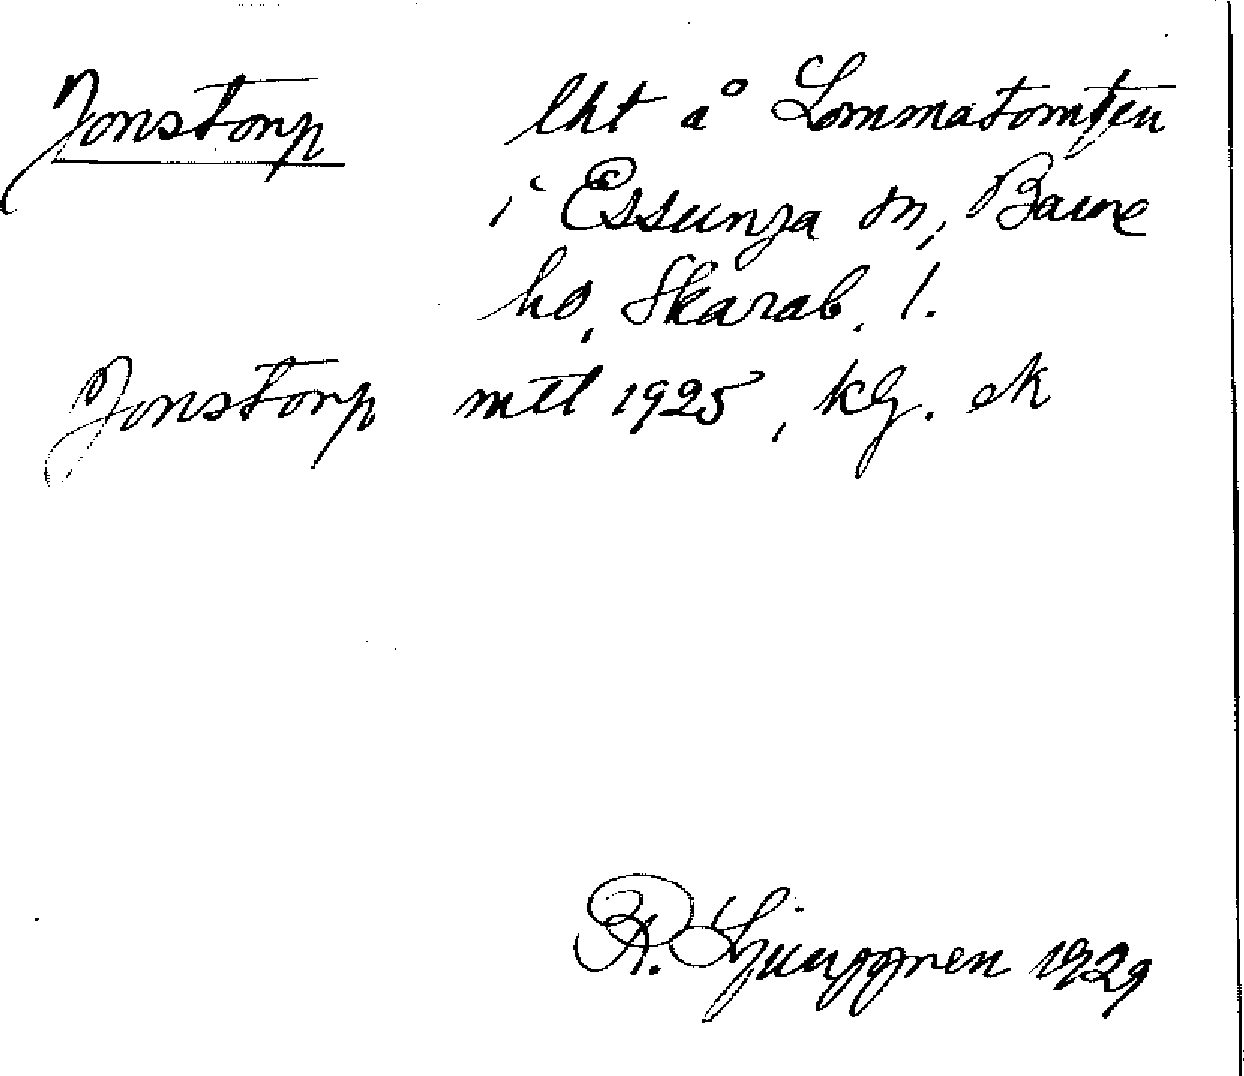 Jonstorp lht å Lommatomten
i Essunga sn, Barne
hd, Skarab. l.
Jonstorp mtl 1925, kg. ek
R. Ljunggren 1929